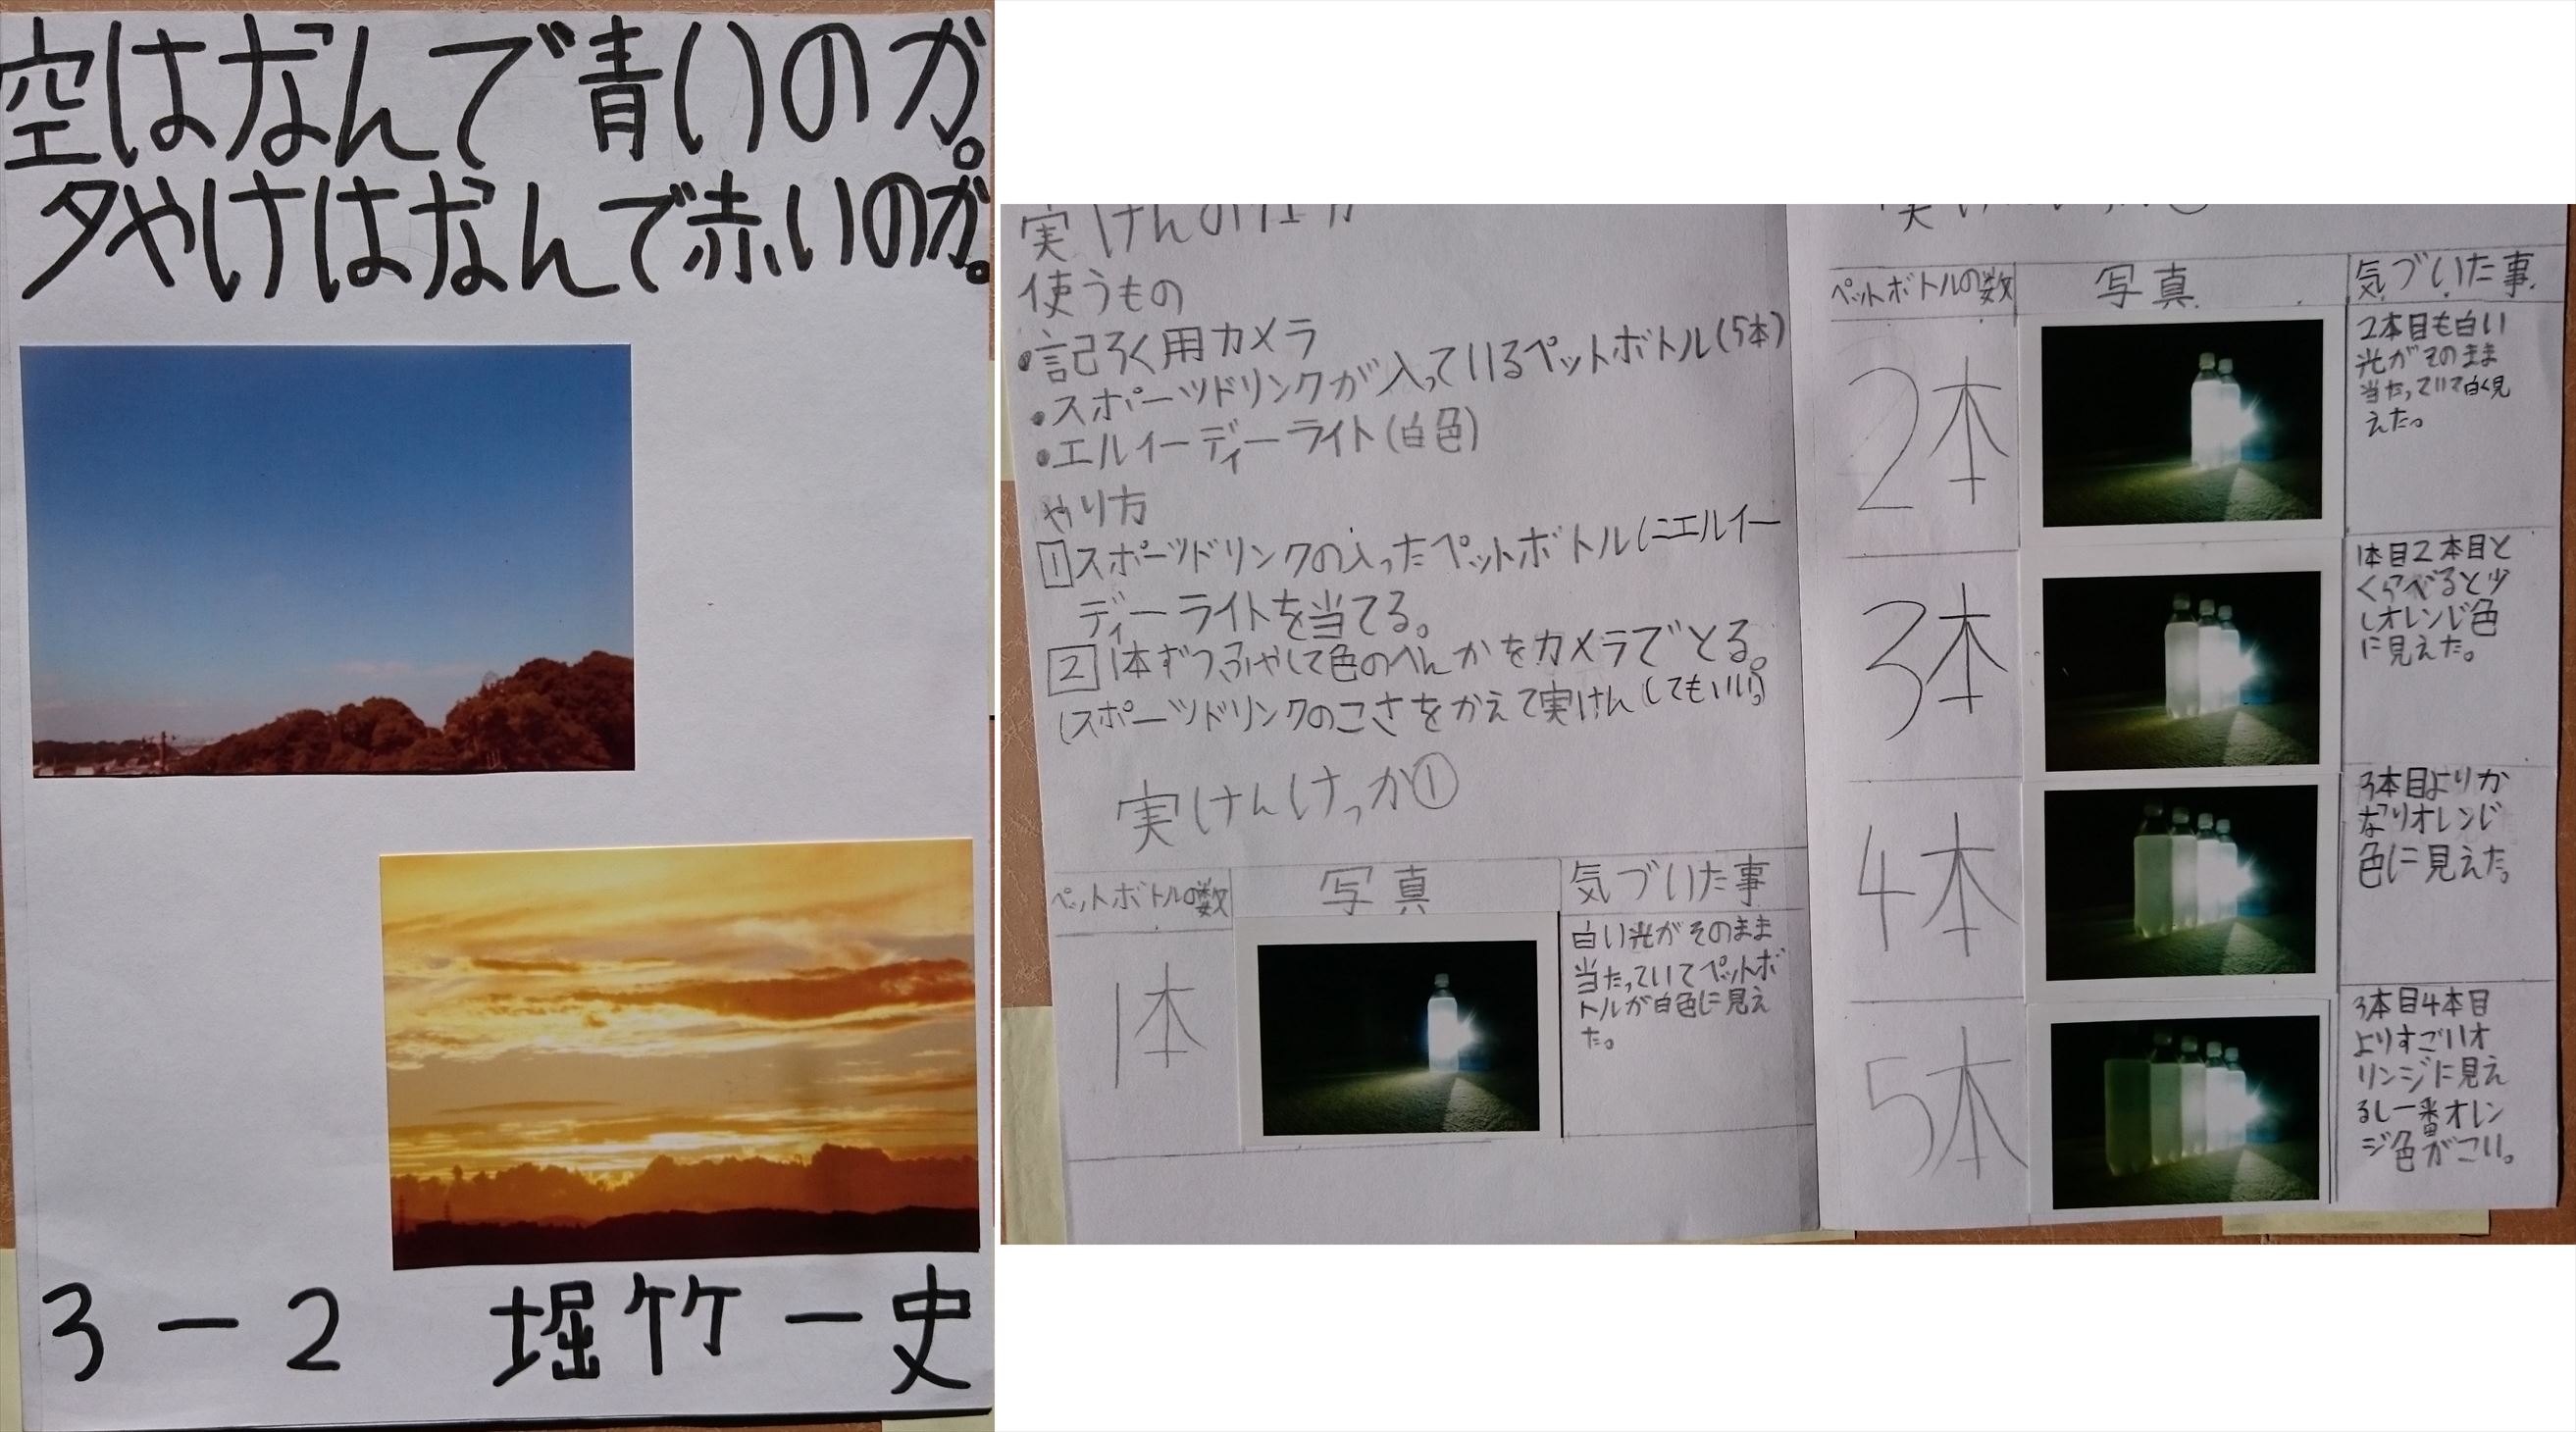 空はなんで青いのか。
夕やけはなんで赤いのか。
3-2 堀竹一史
使うもの
・記ろく用カメラ
・スポーツドリンクが入っているペットボトル(5本)
・エルイーディーライト(白色)
やり方
1 スポーツドリンクの入ったペットボトルにエルイー
ディーライトを当てる。
2 1本ずつふやして色のへんかをカメラでとる。
(スポーツドリンクのこさをかえて実けんしてもいい。)
実けんけっか①
ペットボトルの数 写真 気づいた事
1本
白い光がそのまま
当たっていてペットボ
トルが白色に見え
た。
ペットボトルの数 写真 気づいた事
2本
2本目も白い
光がそのまま
当たっていて白く見
えた。
3本
1本目2本目と
くらべると少
しオレンじ色
に見えた。
4本
3本目よりか
なりオレンじ
色に見えた。
5本
3本目4本目
よりすごいオ
リンジに見え
るし一番オレン
ジ色がこい。